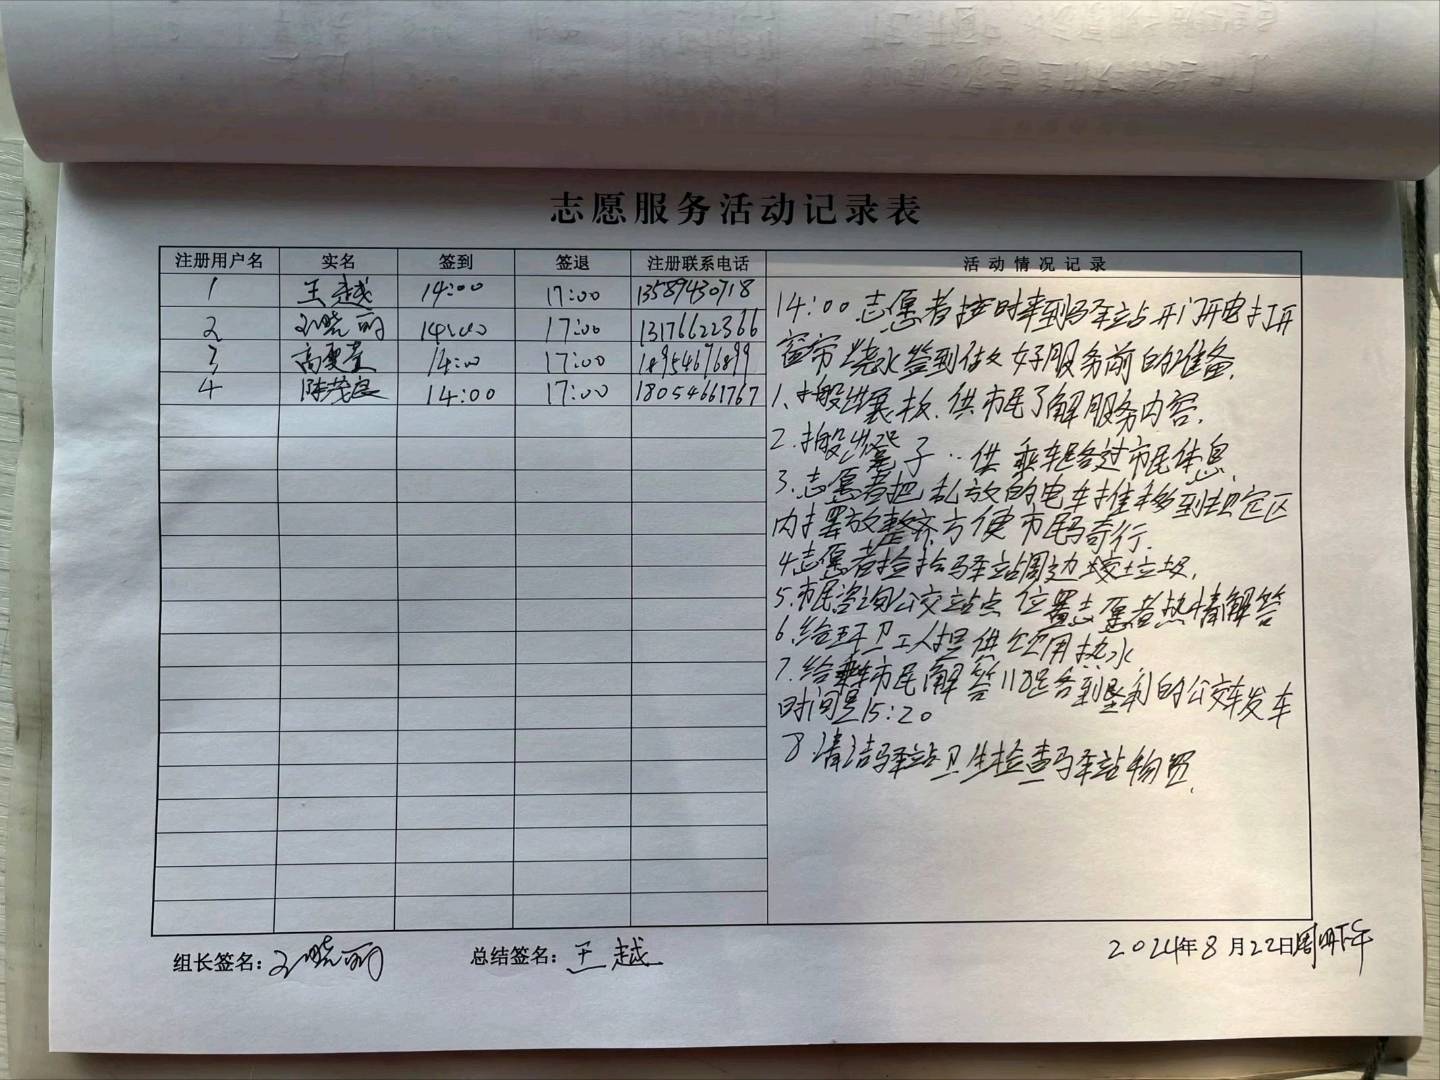 志愿服务活动记录表
注册用户名 实名 签到 签退 注册联系电话 活动情况记录
1 王越 14:00 17:00 13589430718
2 晓丽 14:00 17:00 13176622366
3 高 14:00 17:00 18954676899
4 陈茂 14:00 17:00 18054661767
14:00志愿者按时来到驿站开门开电打开
窗帘烧水签到做好服务前的准备.
1、搬出展板.供市民了解服务内容.
2.搬出凳子..供乘车路过市民休息
3.志愿者把乱放的电车推移到规定区
内摆放整齐方便市民骑行.
4志愿者捡拾驿站周边垃圾.
5.市民咨询公交站点位置志愿者热情解答
6.给环卫工人提供饮用热水
7.给乘车市民解答118路到垦利的公交车发车
时间是15:20
8.清洁驿站卫生检查驿站物资.
组长签名:晓丽 总结签名:王越 2024年8月22日周四下午